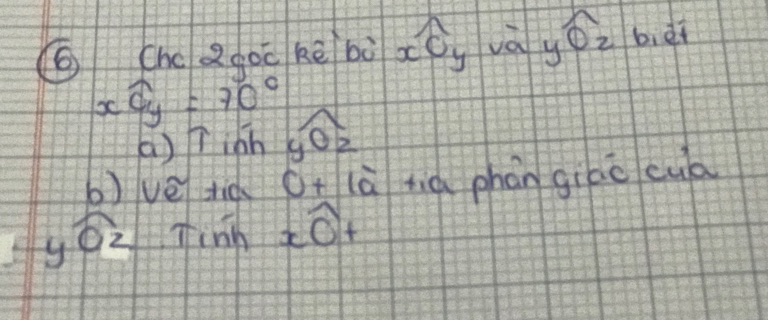 ⑥ Cho 2 góc kề bù xÔy và yÔz biết
xÔy = 70°
a) Tính yÔz
b) Vẽ tia Ot là tia phân giác của
yÔz Tính xÔt